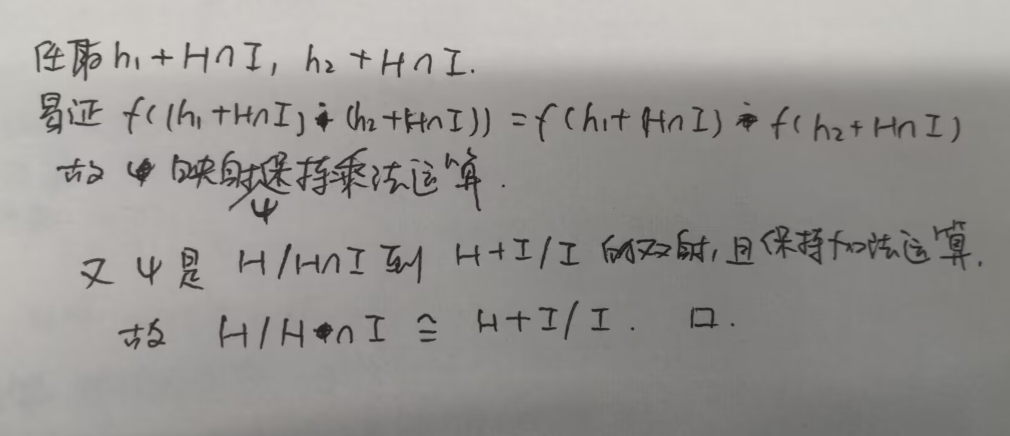 任取 h₁+H∩I, h₂+H∩I.
易证 f((h₁+H∩I)·(h₂+H∩I)) = f(h₁+H∩I)·f(h₂+H∩I)
故 映射保持乘法运算.
ψ
又 ψ 是 H/H∩I 到 H+I/I 的双射, 且保持加法运算.
故 H/H∩I ≅ H+I/I. □.